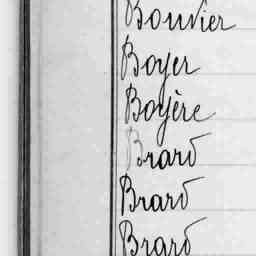 Bouvier
Boyer
Boyère
Brard
Brard
Brard